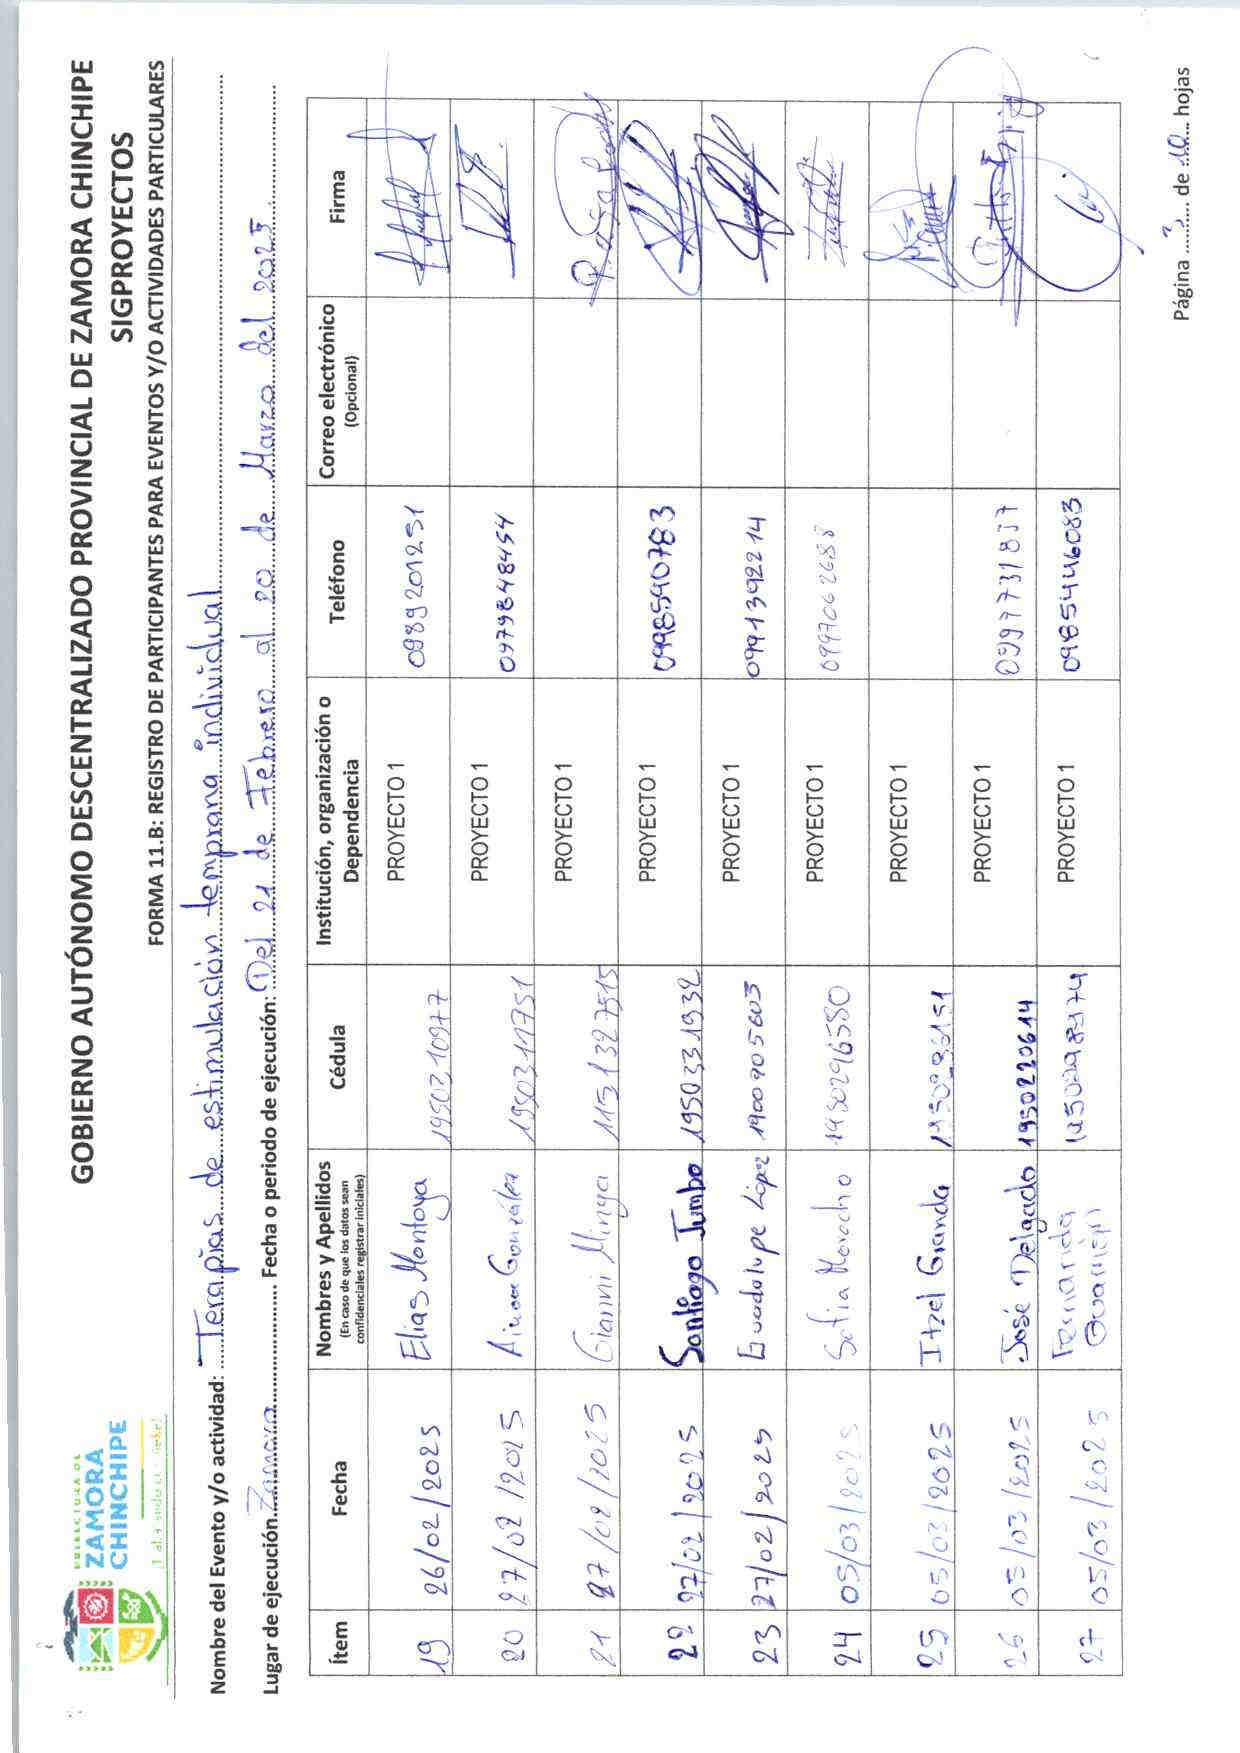 PREFECTURA DE
ZAMORA
CHINCHIPE
GOBIERNO AUTÓNOMO DESCENTRALIZADO PROVINCIAL DE ZAMORA CHINCHIPE
SIGPROYECTOS
FORMA 11.B: REGISTRO DE PARTICIPANTES PARA EVENTOS Y/O ACTIVIDADES PARTICULARES
Nombre del Evento y/o actividad: Terapias de estimulación temprana individual
Lugar de ejecución Zamora Fecha o periodo de ejecución: Del 21 de Febrero al 20 de Marzo del 2025
Ítem Fecha Nombres y Apellidos (En caso de que los datos sean confidenciales registrar iniciales) Cédula Institución, organización o Dependencia Teléfono Correo electrónico (Opcional) Firma
19 26/02/2025 Elias Montoya 1950310977 PROYECTO 1 0989201251
20 27/02/2025 González 1950311751 PROYECTO 1 0979848454
21 27/02/2025 Gianni Minga 1151327515 PROYECTO 1
22 27/02/2025 Santiago Jumbo 1950331932 PROYECTO 1 0998590783
23 27/02/2025 Guadalupe López 1900905603 PROYECTO 1 0991392214
24 05/03/2025 Sofia Morocho 1950296580 PROYECTO 1 0997062688
25 05/03/2025 Itzel Granda PROYECTO 1
26 05/03/2025 José Delgado 1950220614 PROYECTO 1 0997731837
27 05/03/2025 Fernanda Guamán PROYECTO 1 0985446083
Página 3 de 10 hojas